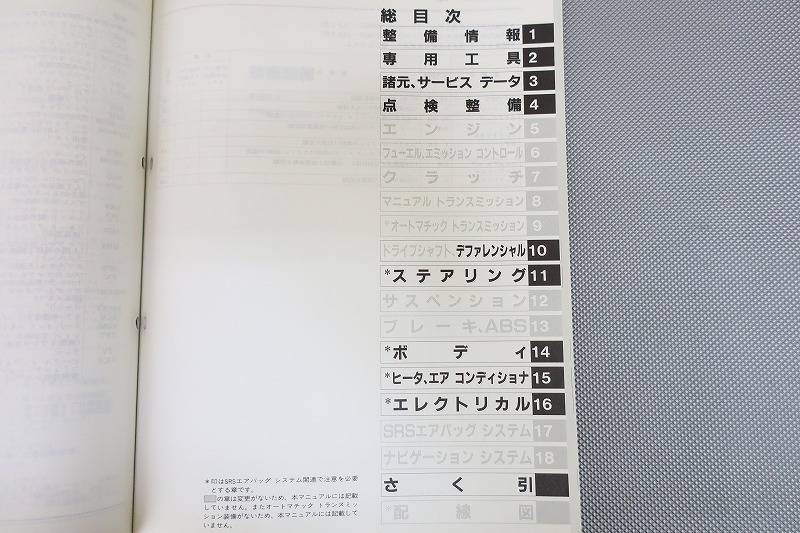 総目次
整備情報 1
専用工具 2
諸元、サービス データ 3
点検整備 4
エンジン 5
フューエル、エミッション コントロール 6
クラッチ 7
マニュアル トランスミッション 8
*オートマチック トランスミッション 9
ドライブシャフト、デファレンシャル 10
*ステアリング 11
サスペンション 12
ブレーキ、ABS 13
*ボディ 14
*ヒータ、エア コンディショナ 15
*エレクトリカル 16
SRSエアバッグ システム 17
ナビゲーション システム 18
さく引
*配線図
*印はSRSエアバッグ システム関連で注意を必要
とする章です。
の章は変更がないため、本マニュアルには記載
していません。またオートマチック トランスミッ
ション装備がないため、本マニュアルには記載して
いません。